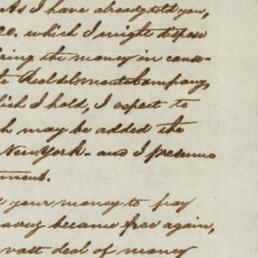 As I have already told you,
which I might dispose
ring the money in
Company,
hich I hold, I expect to
h may be added the
New York - and I presume
ment.
your money to pay
became free again,
a vast deal of money